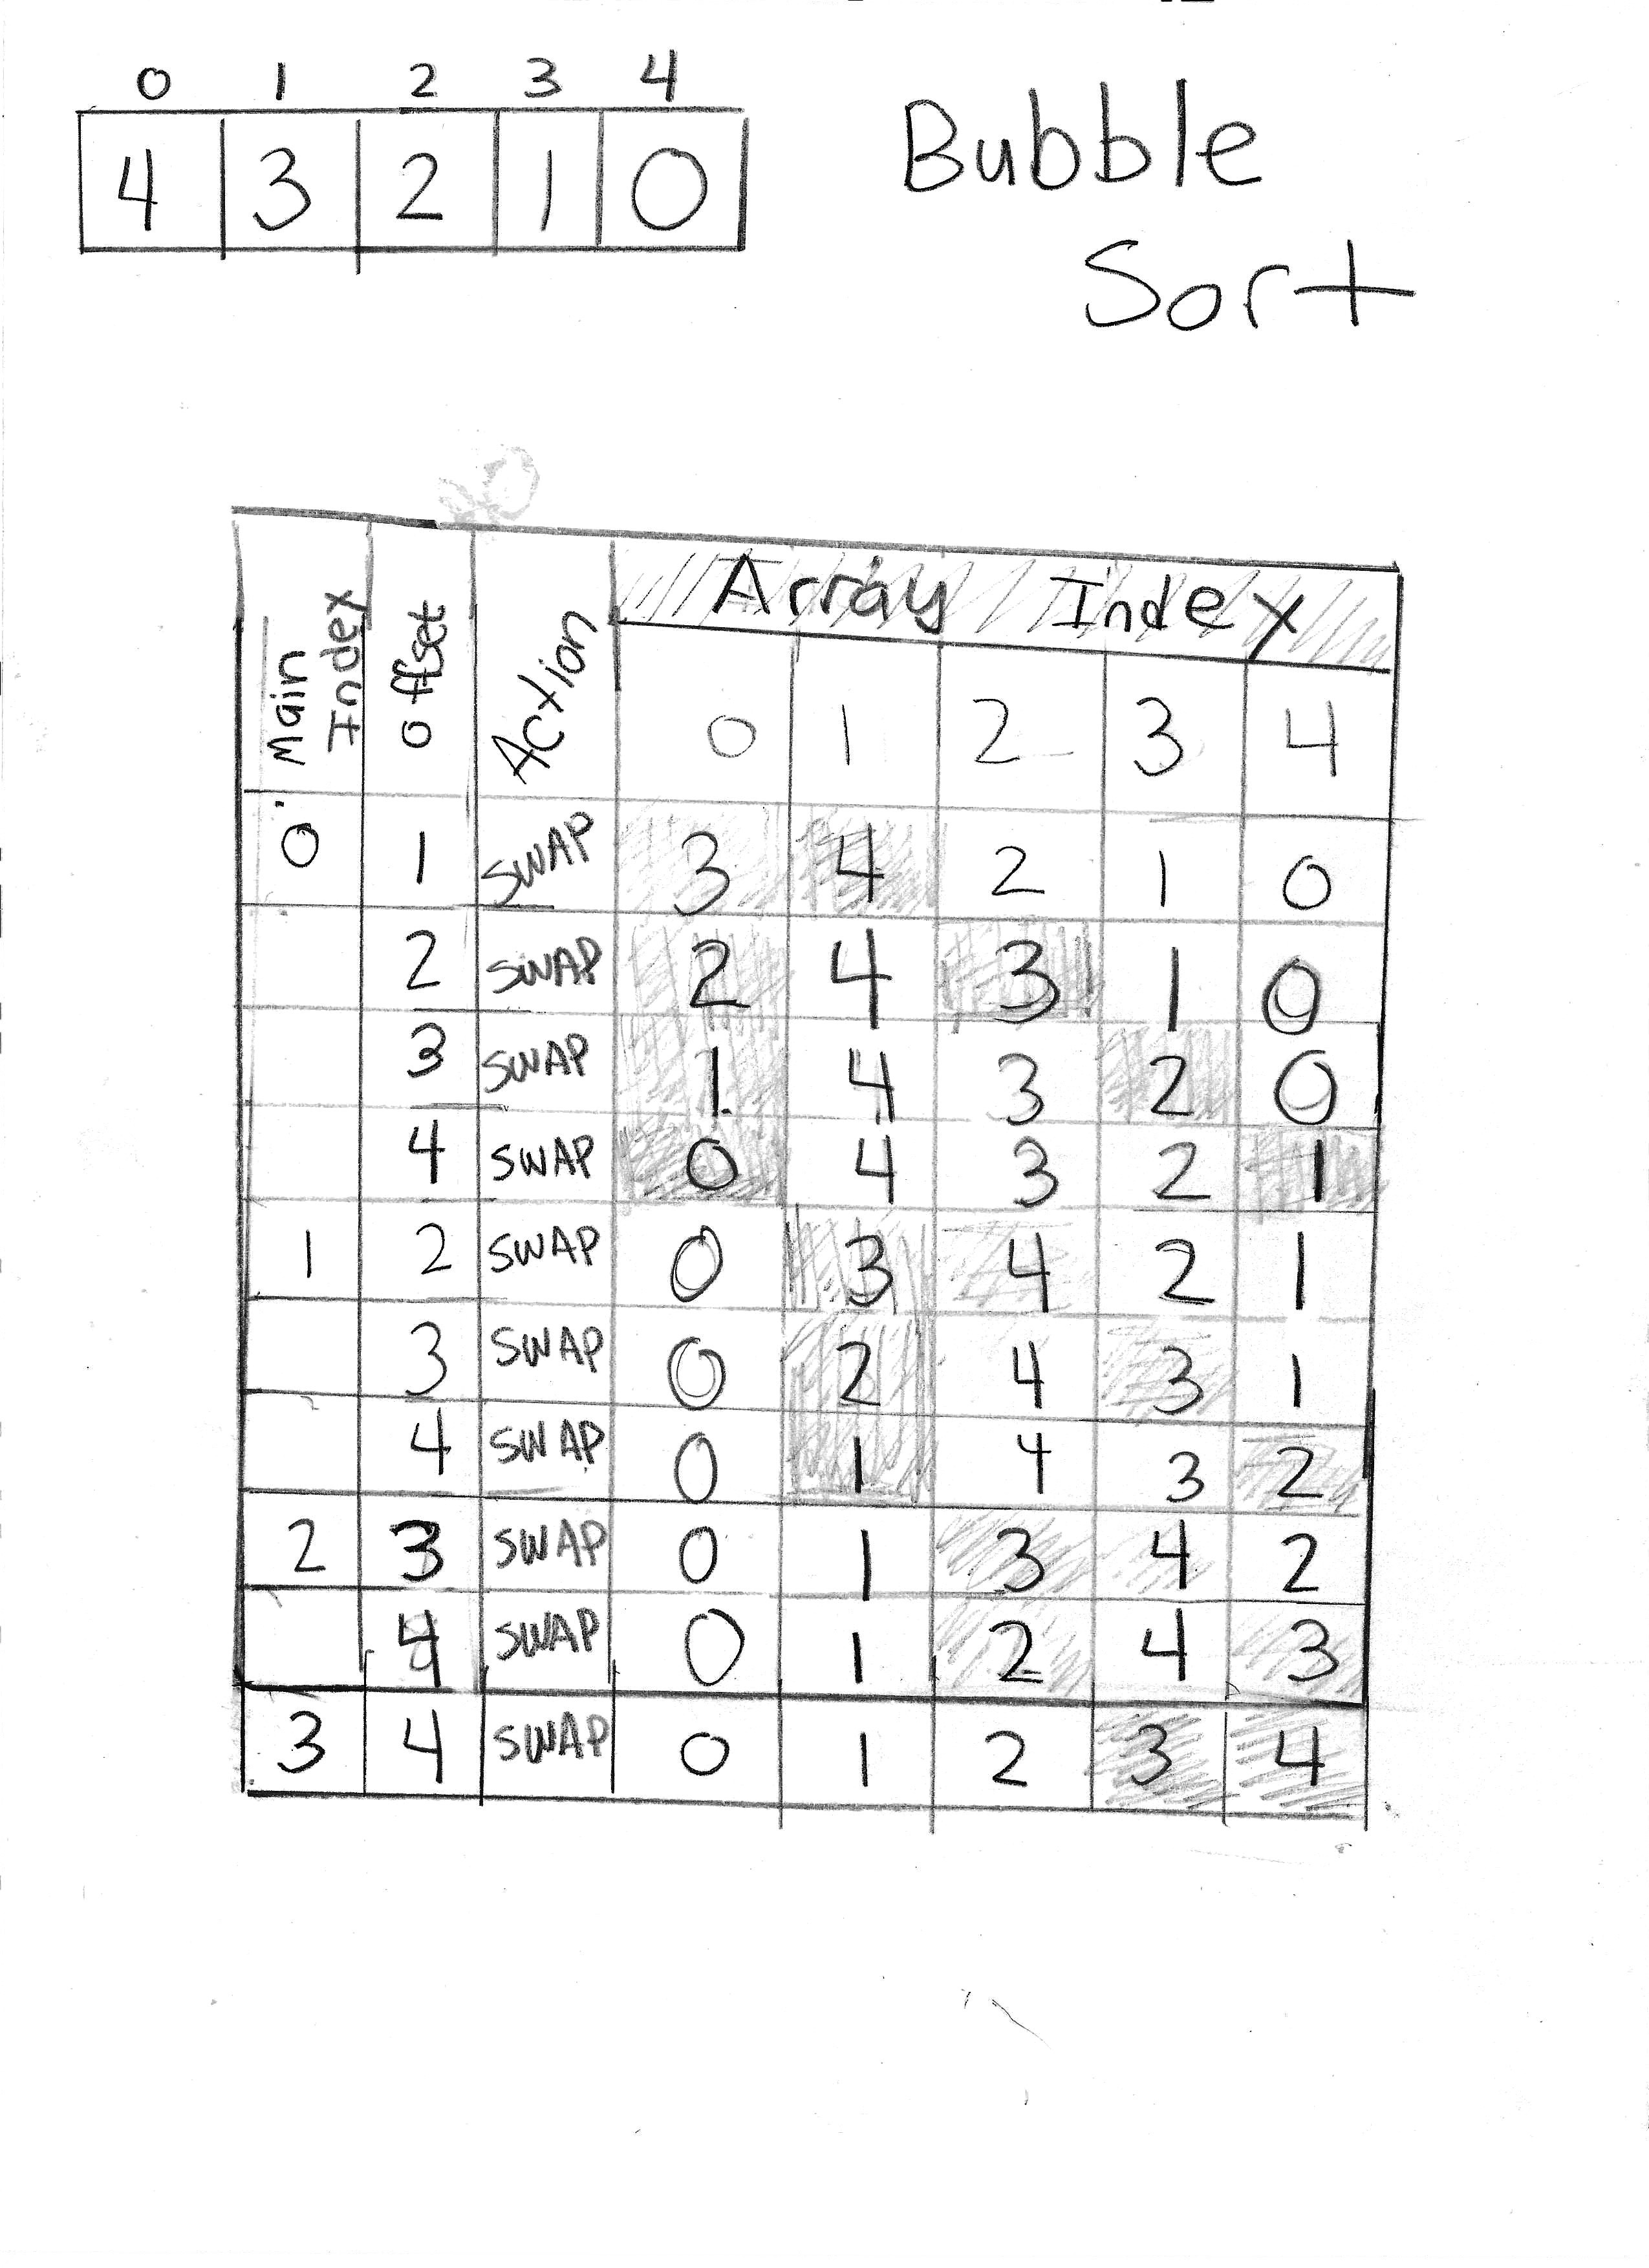 0 1 2 3 4
4 3 2 1 0
Bubble
Sort
Main Index Offset Action Array Index
0 1 2 3 4
0 1 SWAP 3 4 2 1 0
2 SWAP 2 4 3 1 0
3 SWAP 1 4 3 2 0
4 SWAP 0 4 3 2 1
1 2 SWAP 0 3 4 2 1
3 SWAP 0 2 4 3 1
4 SWAP 0 1 4 3 2
2 3 SWAP 0 1 3 4 2
4 SWAP 0 1 2 4 3
3 4 SWAP 0 1 2 3 4